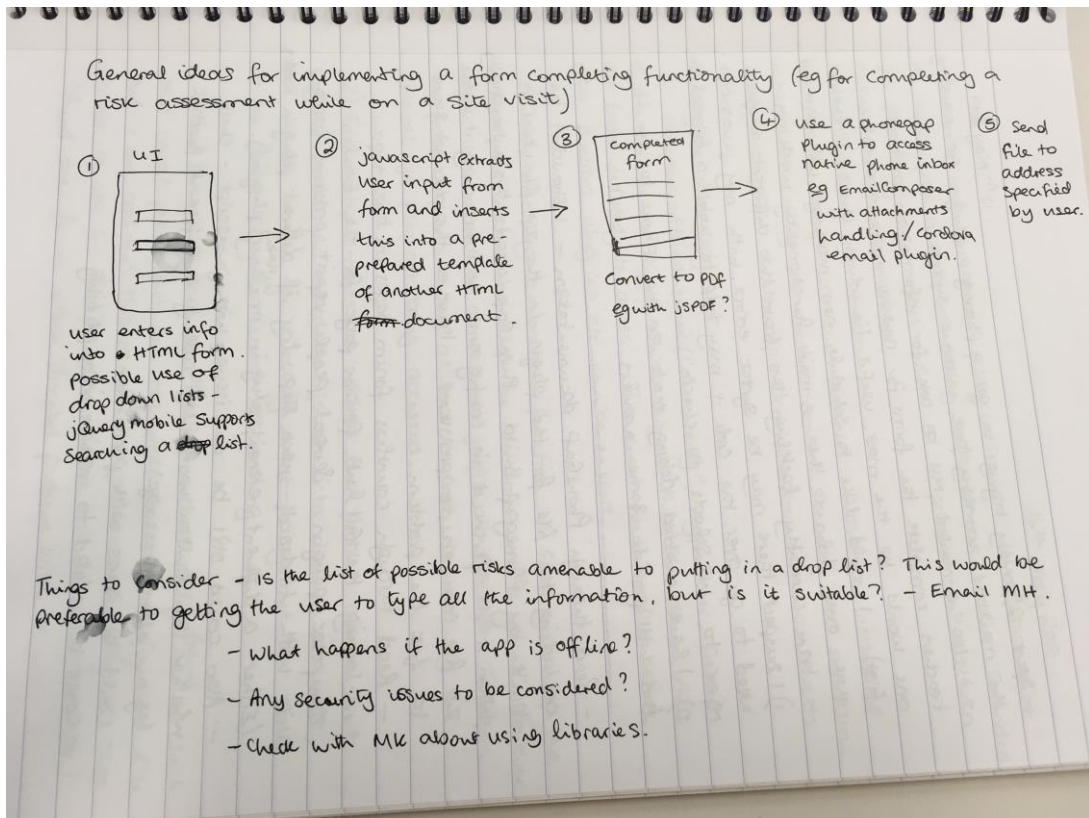 General ideas for implementing a form completing functionality (eg for completing a
risk assessment while on a site visit)
①
UI
user enters info
into HTML form.
possible use of
drop down lists -
jQuery mobile supports
searching a list.
②
javascript extracts
user input from
form and inserts
this into a pre-
prepared template
of another HTML
document.
③
completed
form
Convert to PDF
eg with jSPDF?
④
use a phonegap
plugin to access
native phone inbox
eg EmailComposer
with attachments
handling/Cordova
email plugin.
⑤
Send
file to
address
specified
by user.
Things to consider - Is the list of possible risks amenable to putting in a drop list? This would be
preferable to getting the user to type all the information, but is it suitable? - Email MH.
- What happens if the app is offline?
- Any security issues to be considered?
- Check with MK about using libraries.